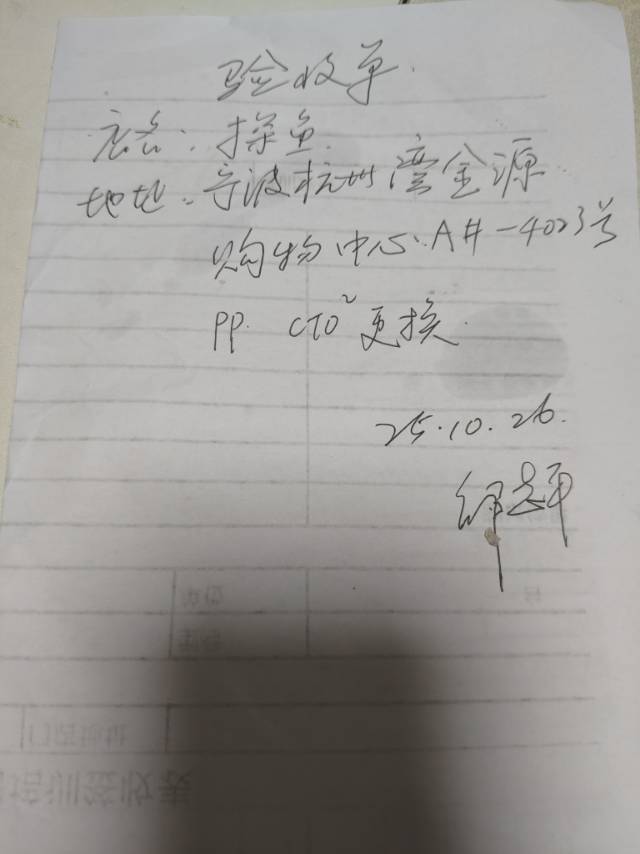 验收单.
店名：探鱼.
地址：宁波杭州湾金源
购物中心.A#-4023号
PP. CTO² 更换.
25.10.26.